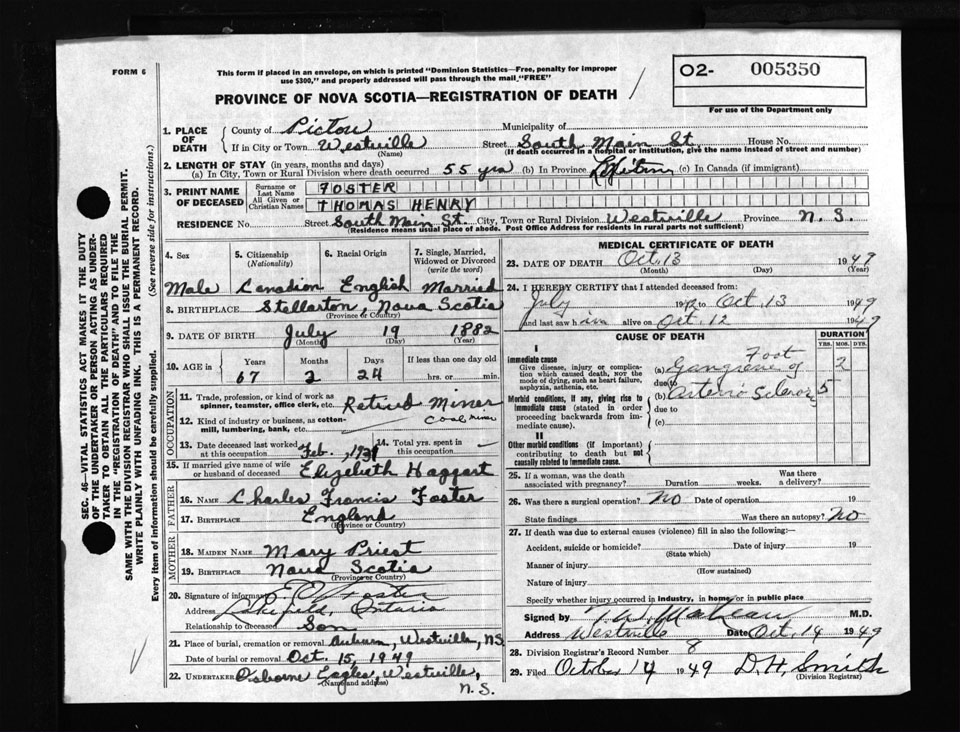 FORM 6
This form if placed in an envelope, on which is printed "Dominion Statistics—Free, penalty for improper
use $300," and properly addressed will pass through the mail "FREE"
PROVINCE OF NOVA SCOTIA—REGISTRATION OF DEATH
O2- 005350
For use of the Department only
SEC. 46—VITAL STATISTICS ACT MAKES IT THE DUTY
OF THE UNDERTAKER OR PERSON ACTING AS UNDER-
TAKER TO OBTAIN ALL THE PARTICULARS REQUIRED
IN THE "REGISTRATION OF DEATH" AND TO FILE THE
SAME WITH THE DIVISION REGISTRAR WHO SHALL ISSUE THE BURIAL PERMIT.
WRITE PLAINLY WITH UNFADING INK. THIS IS A PERMANENT RECORD.
Every item of information should be carefully supplied. (See reverse side for instructions.)
1. PLACE OF DEATH
County of Pictou Municipality of
If in City or Town Westville Street South Main St House No.
(Name) (If death occurred in a hospital or institution, give the name instead of street and number)
2. LENGTH OF STAY (in years, months and days)
(a) In City, Town or Rural Division where death occurred 55 yrs (b) In Province Lifetime (c) In Canada (if immigrant)
3. PRINT NAME OF DECEASED
Surname or Last Name FOSTER
All Given or Christian Names THOMAS HENRY
RESIDENCE No. Street South Main St. City, Town or Rural Division Westville Province N. S.
(Residence means usual place of abode. Post Office Address for residents in rural parts not sufficient)
4. Sex
5. Citizenship (Nationality)
6. Racial Origin
7. Single, Married, Widowed or Divorced (write the word)
Male Canadian English Married
8. BIRTHPLACE Stellarton, Nova Scotia
(Province or Country)
9. DATE OF BIRTH July 19 1882
(Month) (Day) (Year)
10. AGE in Years Months Days If less than one day old
67 2 24 hrs. or min.
OCCUPATION
11. Trade, profession, or kind of work as spinner, teamster, office clerk, etc. Retired Miner
12. Kind of industry or business, as cotton-mill, lumbering, bank, etc. Coal Mines
13. Date deceased last worked at this occupation Feb., 193
14. Total yrs. spent in this occupation —
15. If married give name of wife or husband of deceased Elizabeth Haggart
FATHER
16. NAME Charles Francis Foster
17. BIRTHPLACE England
(Province or Country)
MOTHER
18. MAIDEN NAME Mary Priest
19. BIRTHPLACE Nova Scotia
(Province or Country)
20. Signature of informant Foster
Address Lakefield, Ontario
Relationship to deceased Son
21. Place of burial, cremation or removal Auburn, Westville, NS
Date of burial or removal Oct. 15, 1949
22. UNDERTAKER Osborne Eagles, Westville,
(Name and address) N. S.
MEDICAL CERTIFICATE OF DEATH
23. DATE OF DEATH Oct. 13 1949
(Month) (Day) (Year)
24. I HEREBY CERTIFY that I attended deceased from:
July 19 to Oct 13 1949
and last saw him alive on Oct. 12 1949
CAUSE OF DEATH
DURATION
YRS. MOS. DYS.
I
Immediate cause
Give disease, injury or complication which caused death, not the mode of dying, such as heart failure, asphyxia, asthenia, etc.
(a) Gangrene of Foot 2
due to
Morbid conditions, if any, giving rise to immediate cause (stated in order proceeding backwards from immediate cause).
(b) Arterio Scleros 5
due to
(c)
II
Other morbid conditions (if important) contributing to death but not causally related to immediate cause.
25. If a woman, was the death associated with pregnancy? Duration weeks. Was there a delivery?
26. Was there a surgical operation? No Date of operation 19
State findings Was there an autopsy? No
27. If death was due to external causes (violence) fill in also the following:
Accident, suicide or homicide? Date of injury 19
(State which)
Manner of injury
(How sustained)
Nature of injury
Specify whether injury occurred in industry, in home or in public place
Signed by M.D.
Address Westville Date Oct. 14 1949
28. Division Registrar's Record Number 8
29. Filed October 14 1949 D. H. Smith
(Division Registrar)